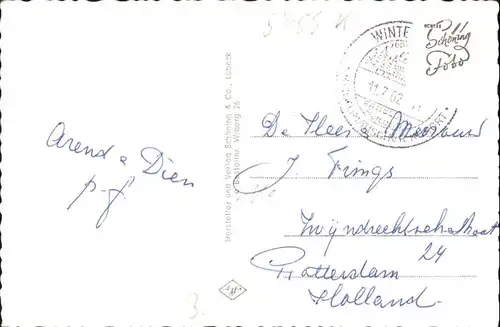 5455 K
echtes
Schöning
Foto
WINTE
11.2.62
Arend & Dien
p.f.
Hersteller und Verlag Schöning & Co., Lübeck
De Heer Mevrouw
J. Frings
Zwijndrechtsestraat
24
Rotterdam
Holland
3.